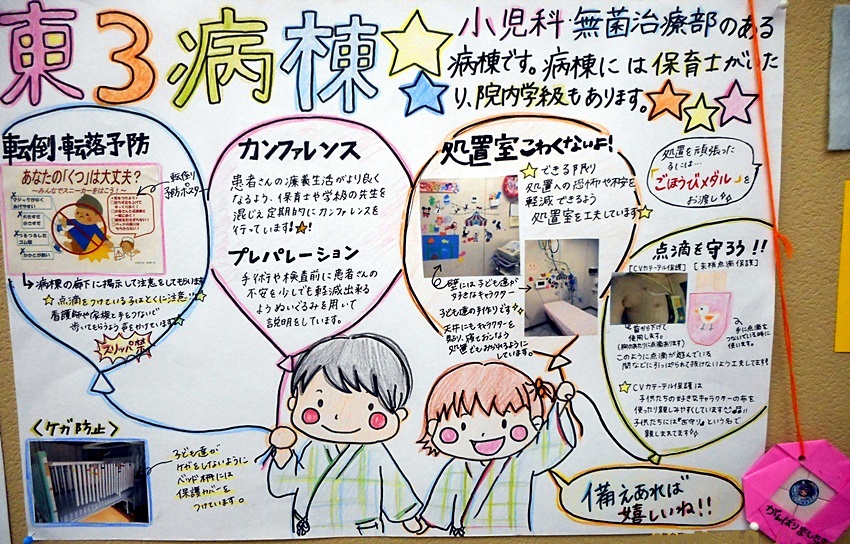 東3病棟
小児科・無菌治療部のある
病棟です。病棟には保育士がいた
り、院内学級もあります。
転倒・転落予防
あなたの「くつ」は大丈夫？
～みんなでスニーカーをはこう！～
転倒
予防ポスター
病棟の廊下に掲示して注意をしてもらいます
点滴をつけている子はとくに注意!!
看護師や家族と手をつないで
歩いてもらうよう声をかけています
スリッパ
カンファレンス
患者さんの療養生活がより良く
なるよう、保育士や学級の先生を
混じえ定期的にカンファレンスを
行っています!
プレパレーション
手術や検査前に患者さんの
不安を少しでも軽減出来る
ようぬいぐるみを用いて
説明をしています。
処置室こわくないよ!
できる限り
処置への恐怖や不安を
軽減できるよう
処置室を工夫しています
壁には子ども達が
好きなキャラクター
子ども達の手作りです
天井にもキャラクターを
貼り、寝ておこなう
処置でもみれるように
しています。
処置を頑張った
子には…
「ごほうびメダル」を
お渡し
点滴を守ろう!!
[CVカテーテル保護]
[末梢点滴保護]
首から下げて
使用します。
手に点滴を
つないでいる時に
使います。
このように点滴が遊んでいる
間などに引っぱられて抜けないよう工夫してます!
CVカテーテル保護は
子供たちの好きなキャラクターの布を
使ったり親しみやすくしています
子供たちには「お守り」という名で
親しまれてます
<ケガ防止>
子ども達が
ケガをしないように
ベッド柵には
保護カバーを
つけています。
備えあれば
嬉しいね!!
がんばりました